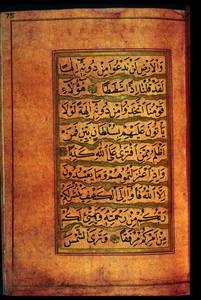 75
وَالْأَرْضِ لَنْ نَدْعُوَا مِنْ دُونِهِ إِلَهًا
لَقَدْ قُلْنَا إِذًا شَطَطًا هَؤُلَاءِ
قَوْمُنَا اتَّخَذُوا مِنْ دُونِهِ آلِهَةً لَوْلَا
يَأْتُونَ عَلَيْهِمْ بِسُلْطَانٍ بَيِّنٍ فَمَنْ
أَظْلَمُ مِمَّنِ افْتَرَى عَلَى اللَّهِ كَذِبًا
وَإِذِ اعْتَزَلْتُمُوهُمْ وَمَا يَعْبُدُونَ
إِلَّا اللَّهَ فَأْوُوا إِلَى الْكَهْفِ يَنْشُرْ لَكُمْ
رَبُّكُمْ مِنْ رَحْمَتِهِ وَيُهَيِّئْ لَكُمْ
مِنْ أَمْرِكُمْ مِرْفَقًا وَتَرَى الشَّمْسَ